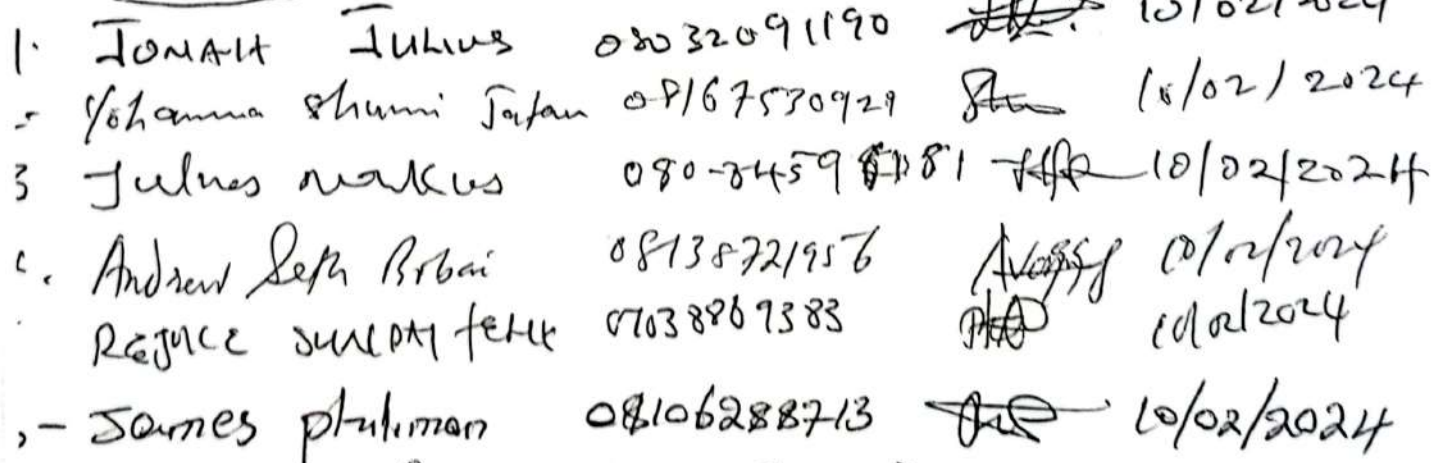 1. JONAH JULIUS 08032091190 10/02/2024
Yohanna Shumi Jatau 08167530929 10/02/2024
3 Julius markus 080-3459 8181 10/02/2024
Andrew Seth Bobai 08138721956 10/02/2024
REJOICE SUNDAY 07038869383 10/02/2024
James philimon 08106288713 10/02/2024